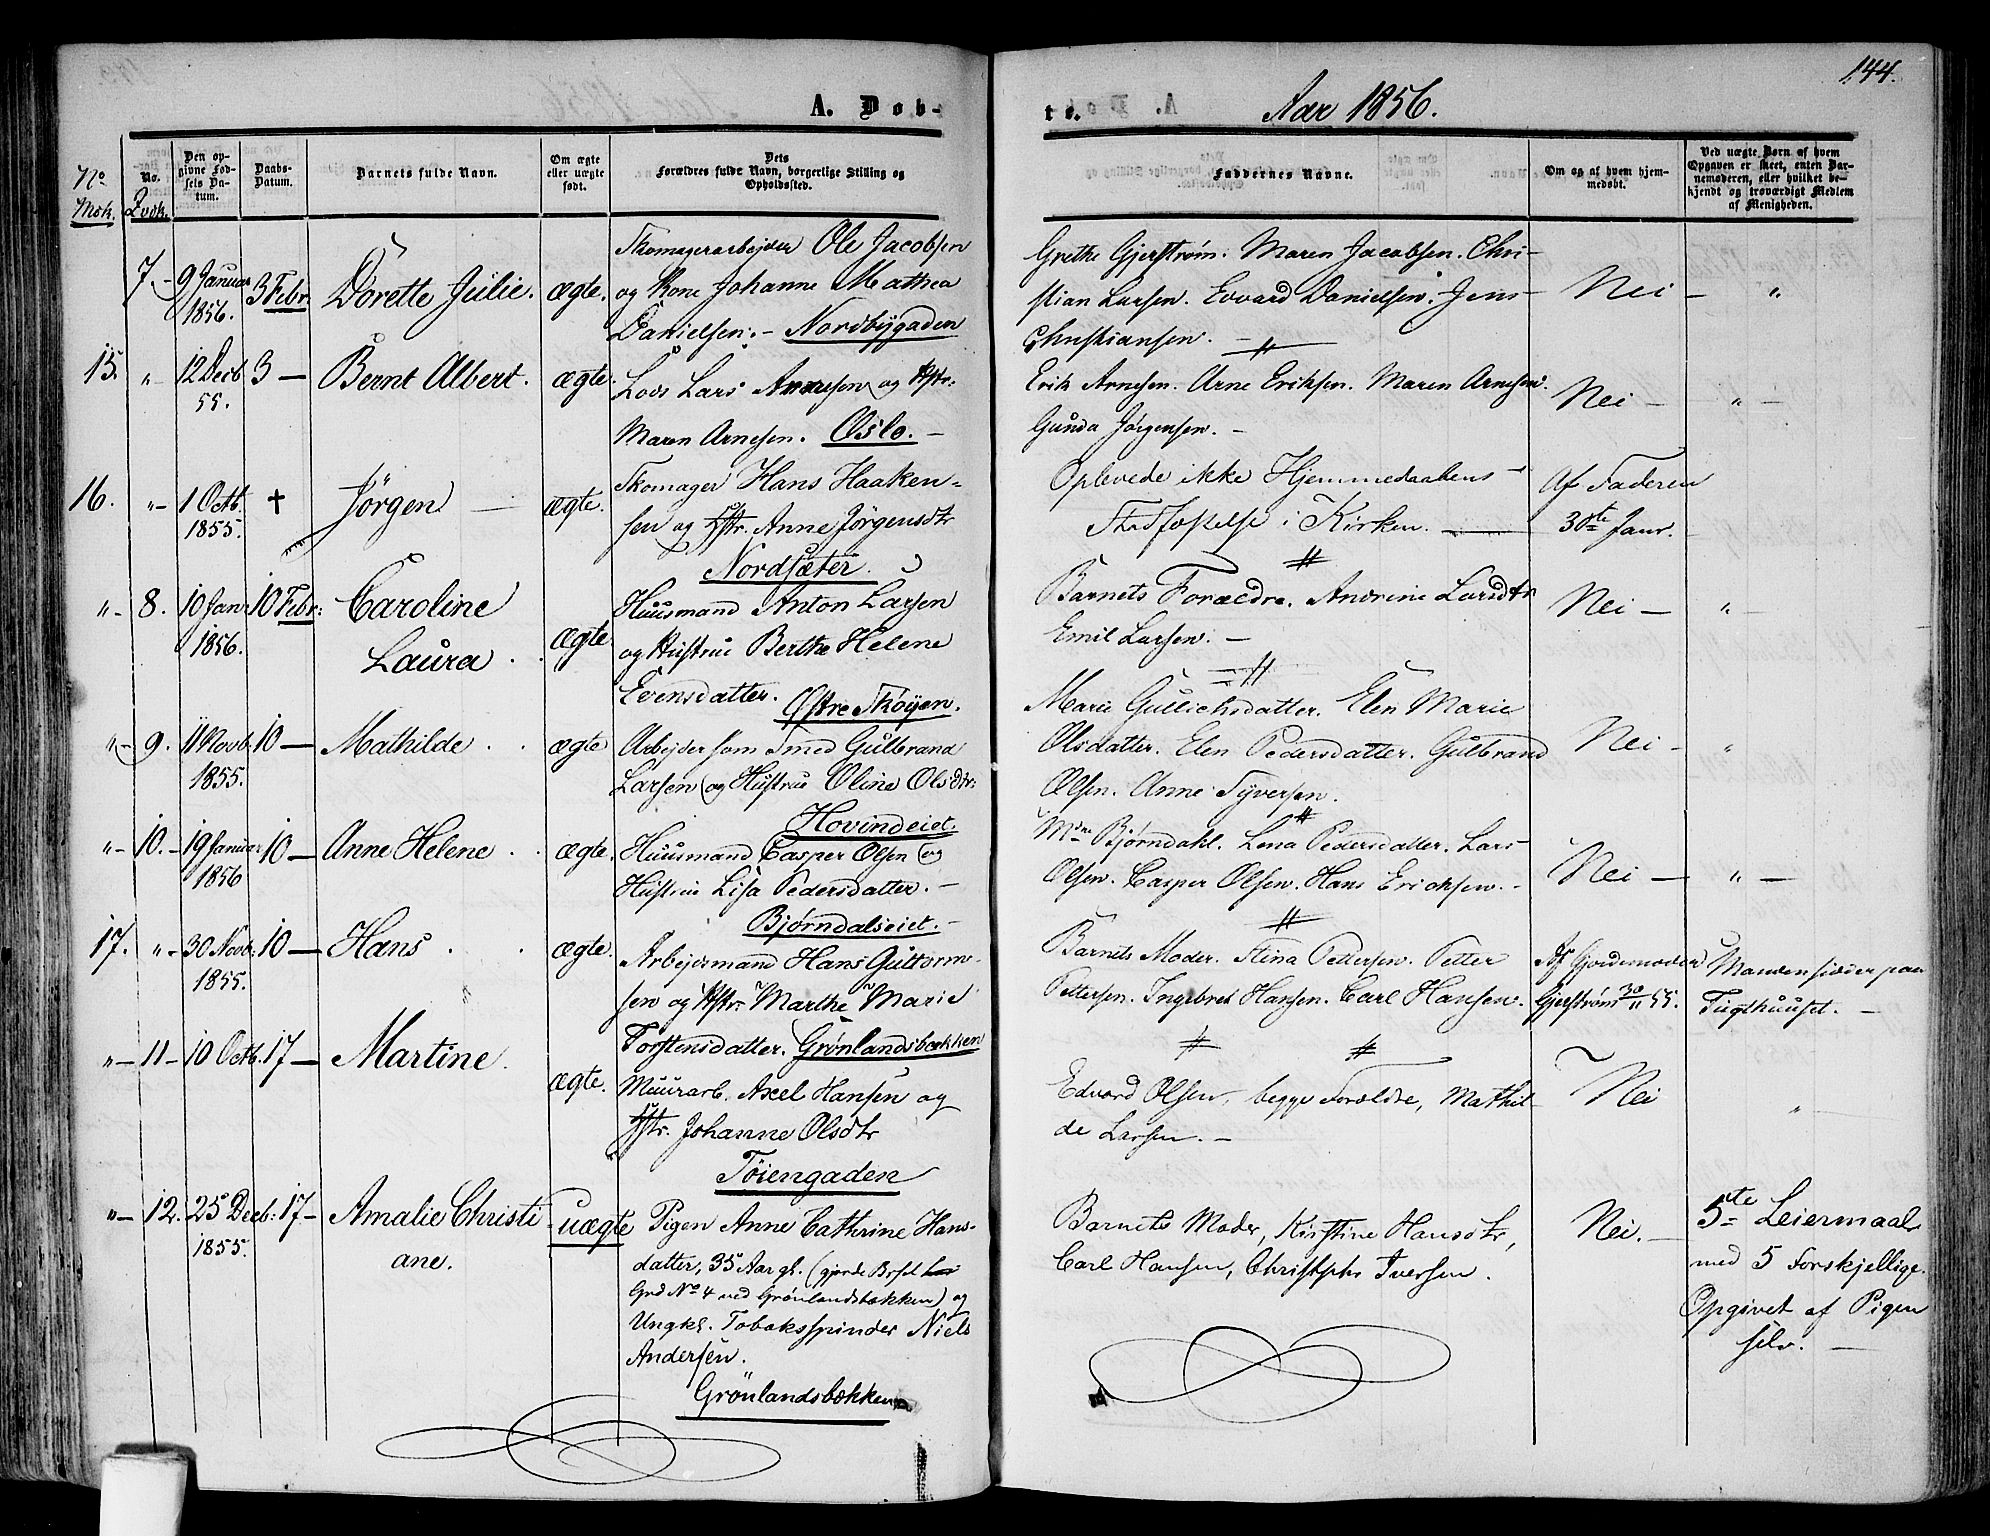 144.
A. Døb-
te.
Aar 1856.
No Msk.
No. Qvdk.
Den opgivne Fødsels Datum.
Daabs-Datum.
Barnets fulde Navn.
Om ægte eller uægte født.
Dets Forældres fulde Navn, borgerlige Stilling og Opholdssted.
Faddernes Navne.
Om og af hvem hjemmedøbt.
Ved uægte Børn af hvem Opgaven er skeet, enten Barnemoderen, eller hvilket bekjendt og troværdigt Medlem af Menigheden.
7. 9 Januar 1856. 3 Febr. Dorette Julie. ægte.
Skomagerarbejder Ole Jacobsen
og Kone Johanne Mathea
Danielsen. - Nordbygaden
Grethe Gjerstrøm. Maren Jacobsen. Chri-
stian Larsen. Edvard Danielsen. Jens
Christiansen. -
Nei - "
15. " 12 Decb 55. 3 - Bernt Albert. ægte.
Lods Lars Andresen og Hstr:
Maren Arnesen. Oslo. -
Erik Arnesen. Arne Eriksen. Maren Arnesen.
Gunda Jørgensen. -
Nei - " -
16. " 1 Octb. 1855. † Jørgen - ægte.
Skomager Hans Haaken-
sen og Hstr. Anne Jørgensdtr
Nordsæter.
Oplevede ikke Hjemmedaabens
Stadfæstelse i Kirken. -
Af Faderen
30te Janr.
" - 8. 10 Janr 1856. 10 Febr: Caroline
Laura . . ægte.
Huusmand Anton Larsen
og Hustrue Berthe Helene
Evensdatter. Østre Skøyen.
Barnets Forældre. Andrine Larsdtr
Emil Larsen. -
Nei - "
" - 9. 11 Novb. 1855. 10 - Mathilde . . ægte
Arbejder som Smed Gulbrand
Larsen og Hustrue Oline Olsdtr.
Hovindeiet.
Marie Gullichsdatter. Elen Marie
Olsdatter. Elen Pedersdatter. Gulbrand
Olsen. Anne Syversen.
Nei - "
" - 10. - 19 Januar 1856 10 - Anne Helene . . ægte.
Huusmand Casper Olsen og
Hustrue Lisa Pedersdatter. -
Bjørndalseiet. -
Bjørndahl. Lena Pedersdatter. Lars
Olsen. Casper Olsen. Hans Erichsen. -
Nei - " -
17. " - 30 Novb: 1855. 10 - Hans . . ægte.
Arbejdsmand Hans Guttorm-
sen og Hstr: Marthe Marie
Torstensdatter. Grønlandsbækken
Barnets Moder. Stina Pettersen. Petter
Pettersen. Ingebret Hansen. Carl Hansen.
Af Gjordemoder
Gjerstrøm 30/11 55.
Manden sidder paa
Tugthuuset. -
" - 11 - 10 Octb. 17 - Martine . ægte.
Muurarb. Axel Hansen og
Hstr. Johanne Olsdtr
Töiengaden
Edvard Olsen, begge Forældre, Mathil-
de Larsen. -
Nei "
" - 12. 25 Decb: 1855. 17 - Amalie Christi
ane. uægte
Pigen Anne Cathrine Hans-
datter, 35 Aar gl. (gjorde Brsel hos
Grd No 4 ved Grönlandsbækken) og
Ungkl. Tobaksspinder Niels
Andersen.
Grönlandsbækken
Barnets Moder, Kirstine Hansdtr,
Carl Hansen, Christopher Iversen.
Nei. -
5te Leiermaal
med 5 Forskjellige.
Opgivet af Pigen
selv. -